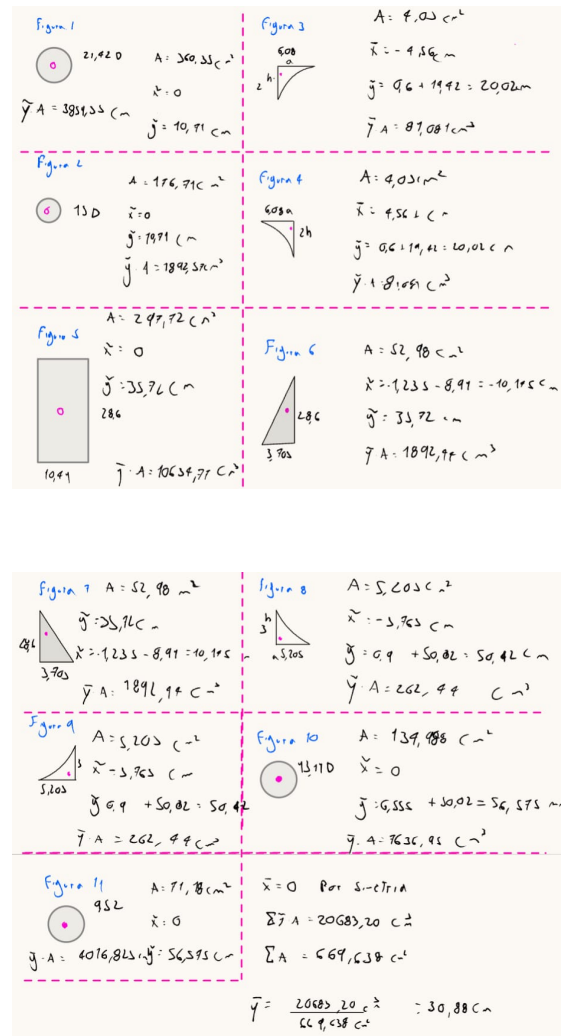 Figura 1
21,42 D
A = 360,33 cm²
x̄ = 0
ȳ A = 3859,33 cm
ȳ = 10,71 cm
Figura 2
15 D
A = 176,71 c m²
x̄ = 0
ȳ = 10,71 cm
ȳ · A = 1892,57 cm³
Figura 3
6,08
a
2 h
A = 4,05 cm²
x̄ = - 4,56 cm
ȳ = 0,6 + 19,42 = 20,02 cm
ȳ A = 81,081 cm³
Figura 4
6,08 a
2h
A = 4,05 cm²
x̄ = 4,56 cm
ȳ = 0,6 + 19,42 = 20,02 cm
ȳ · A = 81,081 cm³
Figura 5
28,6
10,41
A = 297,72 cm²
x̄ = 0
ȳ = 35,72 cm
ȳ · A = 10634,77 cm³
Figura 6
28,6
3,705
A = 52,98 cm²
x̄ = -1,235 - 8,91 = -10,145 cm
ȳ = 35,72 cm
ȳ A = 1892,44 cm³
Figura 7
28,6
3,705
A = 52,98 m²
ȳ = 35,72 cm
x̄ = -1,235 - 8,91 = 10,145
ȳ A = 1892,44 cm³
Figura 8
h
3
a 5,205
A = 5,205 cm²
x̄ = -3,763 cm
ȳ = 0,9 + 50,02 = 50,42 cm
ȳ · A = 262,44 cm³
Figura 9
3
5,205
A = 5,205 cm²
x̄ - 3,763 cm
ȳ 0,9 + 50,02 = 50,42
ȳ A = 262,44 cm³
Figura 10
13,11 D
A = 134,988 cm²
x̄ = 0
ȳ = 6,555 + 50,02 = 56,575 cm
ȳ · A = 7636,95 cm³
Figura 11
9,52
A = 71,18 cm²
x̄ = 0
ȳ · A = 4016,825 cm
ȳ = 56,575 cm
x̄ = 0 Por simetria
Σ ȳ A = 20683,20 cm³
Σ A = 669,638 cm²
ȳ = 20683,20 cm³ / 669,638 cm² = 30,88 cm